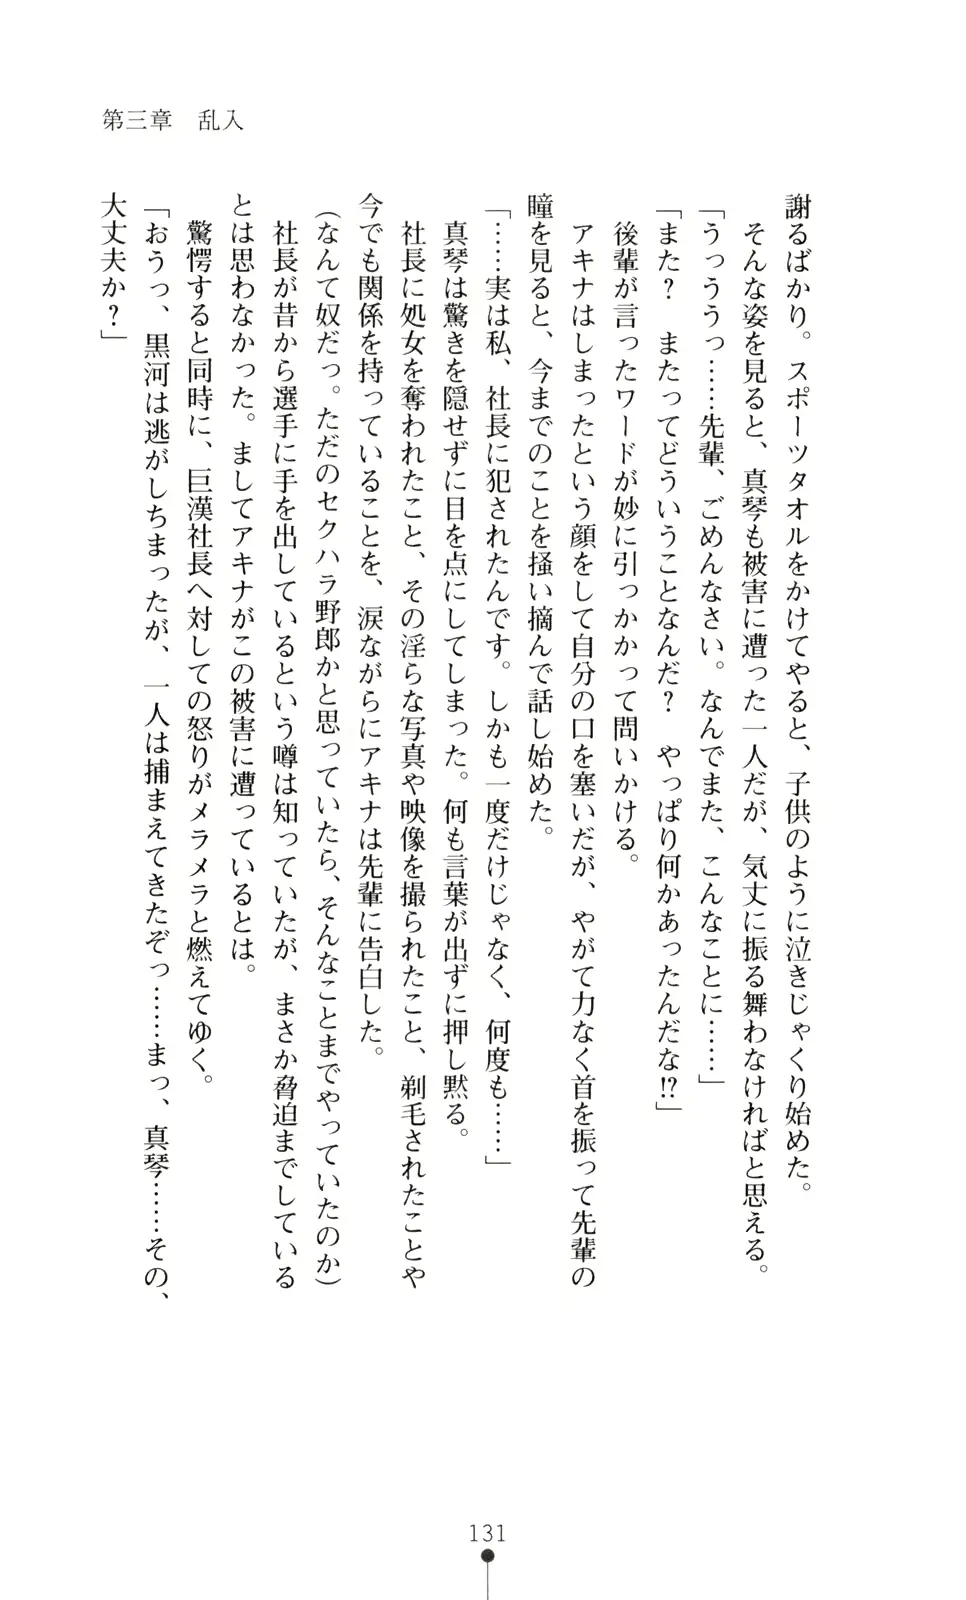 第三章　乱入
謝るばかり。スポーツタオルをかけてやると、子供のように泣きじゃくり始めた。
そんな姿を見ると、真琴も被害に遭った一人だが、気丈に振る舞わなければと思える。
「うっううっ……先輩、ごめんなさい。なんでまた、こんなことに……」
「また？　またってどういうことなんだ？　やっぱり何かあったんだな!?」
後輩が言ったワードが妙に引っかかって問いかける。
アキナはしまったという顔をして自分の口を塞いだが、やがて力なく首を振って先輩の
瞳を見ると、今までのことを掻い摘んで話し始めた。
「……実は私、社長に犯されたんです。しかも一度だけじゃなく、何度も……」
真琴は驚きを隠せずに目を点にしてしまった。何も言葉が出ずに押し黙る。
社長に処女を奪われたこと、その淫らな写真や映像を撮られたこと、剃毛されたことや
今でも関係を持っていることを、涙ながらにアキナは先輩に告白した。
（なんて奴だっ。ただのセクハラ野郎かと思っていたら、そんなことまでやっていたのか）
社長が昔から選手に手を出しているという噂は知っていたが、まさか脅迫までしている
とは思わなかった。ましてアキナがこの被害に遭っているとは。
驚愕すると同時に、巨漢社長へ対しての怒りがメラメラと燃えてゆく。
「おうっ、黒河は逃がしちまったが、一人は捕まえてきたぞっ……まっ、真琴……その、
大丈夫か？」
131